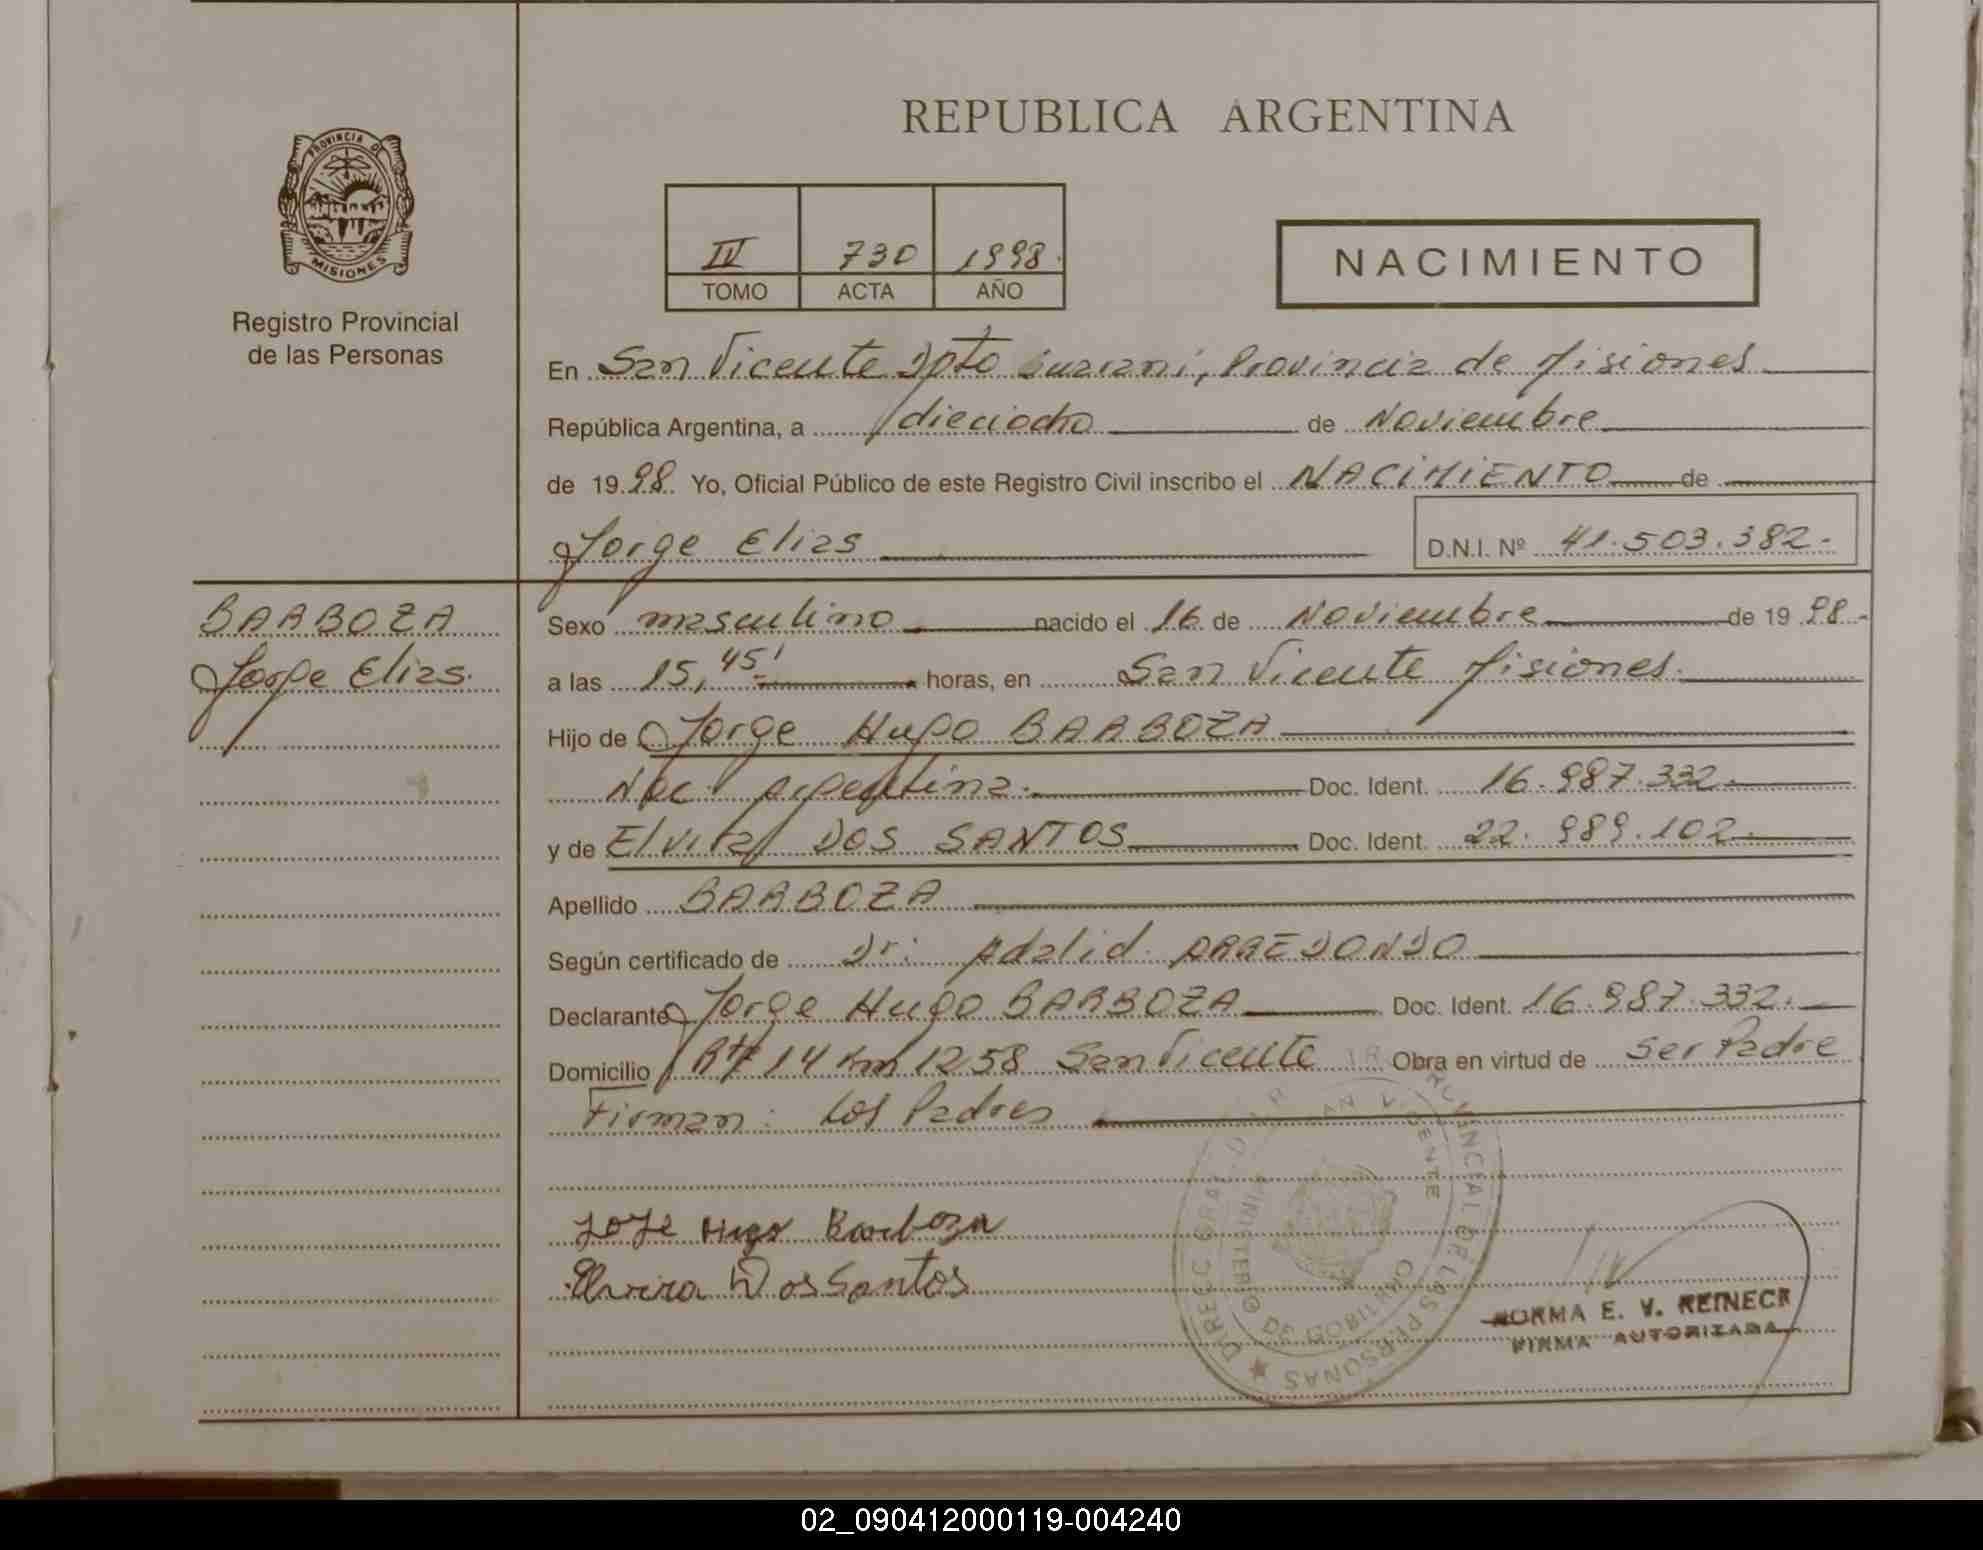 REPUBLICA ARGENTINA
PROVINCIA D
MISIONES
Registro Provincial
de las Personas
IV 730 1998.
TOMO ACTA AÑO
NACIMIENTO
En San Vicente Dpto Guarani, Provincia de Misiones
República Argentina, a dieciocho de Noviembre
de 1998. Yo, Oficial Público de este Registro Civil inscribo el NACIMIENTO de
Jorge Elias D.N.I. Nº 41.503.382.-
BARBOZA
Jorge Elias.
Sexo masculino nacido el 16 de Noviembre de 1998.-
a las 15,45' horas, en San Vicente Misiones.
Hijo de Jorge Hugo BARBOZA
Nac. Argentina. Doc. Ident. 16.987.332.
y de Elvira DOS SANTOS Doc. Ident. 22.989.102.
Apellido BARBOZA
Según certificado de Dr. Adalid ARREDONDO
Declarante Jorge Hugo BARBOZA Doc. Ident. 16.987.332.
Domicilio Rta 14 Km 1258 San Vicente Obra en virtud de Ser Padre
Firman: Los Padres
Hugo Barboza
Elvira Dos Santos
NORMA E. V. REINECK
FIRMA AUTORIZADA
DE LAS PERSONAS
MINISTERIO DE GOBIERNO
02_090412000119-004240